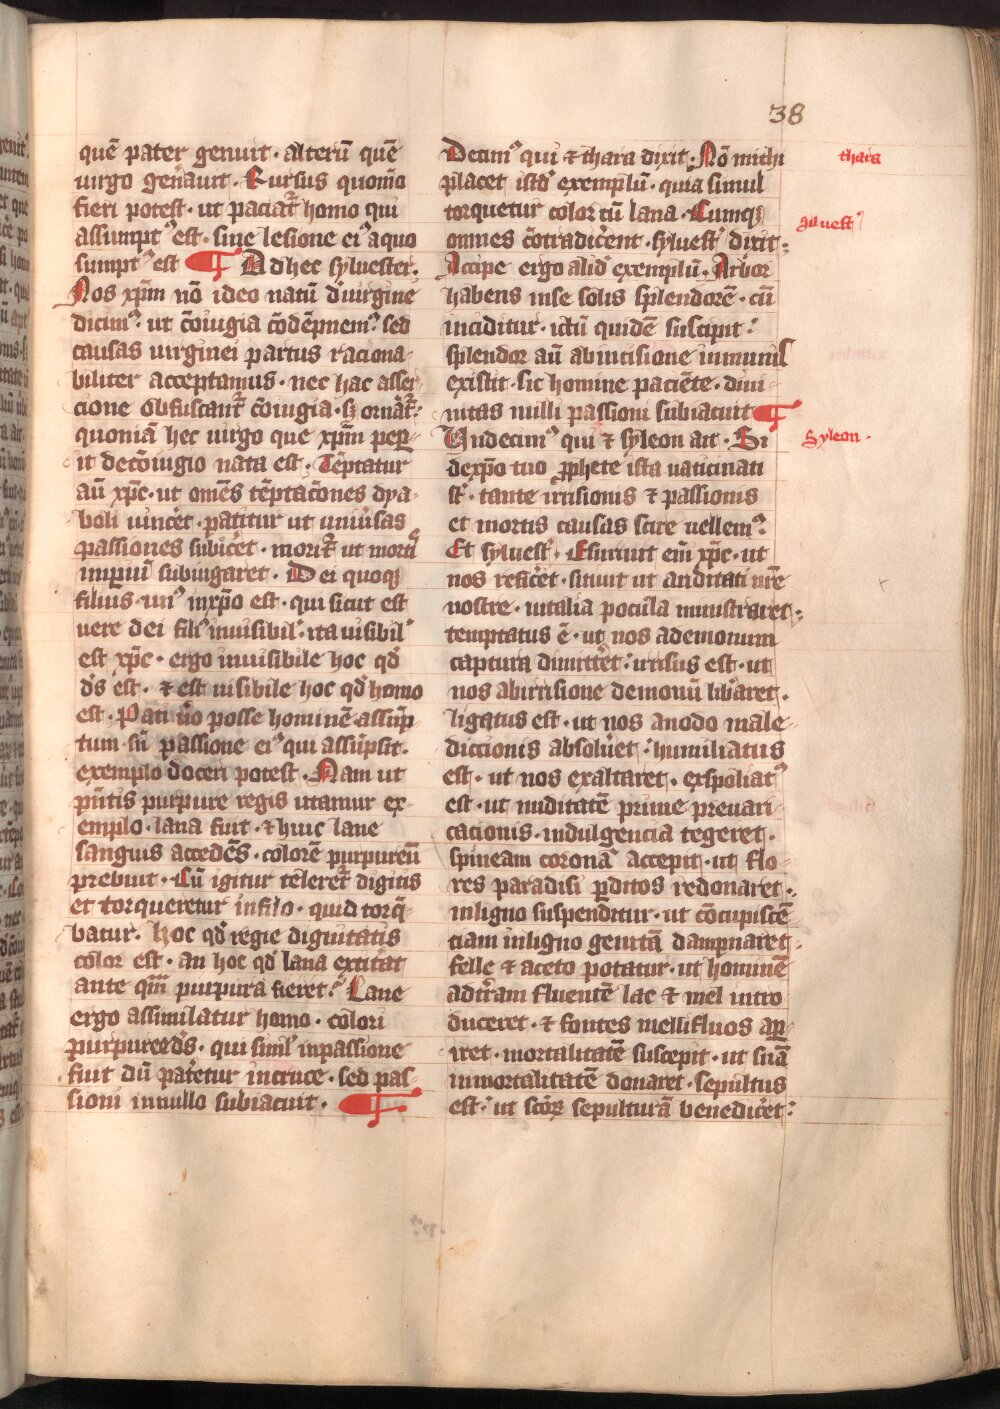 38
quē pater genuit · alterū quē
uirgo gen̄auit · Rursus quom̄o
fieri potest · ut paciat᷑ homo qui
assumptꝰ est · sine lesione eiꝰ a quo
sumptꝰ est ¶ Ad hec syluester ·
Nos xp̄m nō ideo natū d̓uirgine
dicimꝰ · ut c̄oiugia c̄odēpnemꝰ · sed
causas uirginei partus raciona-
biliter acceptamus · nec hac asser-
cione obfuscant᷑ c̄oiugia · sꝫ ornāt᷑ ·
quoniā hec uirgo que xp̄m pepe-
it de c̄oiugio nata est · Tēptatur
aū xp̄c · ut om̄es tēptac̄ones dya-
boli uinc̓et · patitur ut uniu̓sas
passiones subic̓et · morit᷑ ut morti
imꝑiū subiugaret · Dei quoqꝫ
filius · unꝰ in xp̄o est · qui sicut est
uere dei filiꝰ inuisibil᷑ · ita uisibil᷑
est xp̄c · ergo inuisibile hoc qd̓
d̄s est · ⁊ est uisibile hoc qd̓ homo
est · Pati u̓o posse hominē assūp-
tum · sn̄ passione eiꝰ qui assūpsit ·
exemplo doceri potest · Nam ut
pn̄tis purpure regis utamur ex-
emplo · lana fuit · ⁊ huic lane
sanguis accedēs · colorē purpureū
prebuit · Cū igitur tēleret᷑ digitis
et torqueretur in filo · quid torq̄-
batur · Hoc qd̓ regie dignitatis
color est · an hoc qd̓ lana extit̓at
ante qm̄ purpura fieret · Lane
ergo assimulatur homo · colori
purpureo d̓s · qui siml̓ in passione
fuit dū pat̓etur in cruce · sed pas-
sioni in nullo subiacuit · ¶
Decimꝰ qui ⁊ thara dixit · Nō michi
placet istd̓ exemplū · quia simul
torquetur color cū lana · Cumqꝫ
omnes c̄otradic̓ent · syluest᷑ dixit ·
Accipe ergo aliud̓ exemplū · Arbor
habens in se solis splendorē · cū
inciditur · ictū quidē suscipit ·
splendor aū ab incisione inmunis
existit · sic homine paciēte · diui-
nitas nulli passioni subiacuit ¶
Undecimꝰ qui ⁊ syleon ait · Si
de xp̄o tuo ꝓphete ista uaticinati
st̄ · tante irrisionis ⁊ passionis
et mortis causas scire uellemꝰ ·
Et syluest᷑ · Esuriuit em̄ xp̄c · ut
nos refic̓et · sitiuit ut ariditati nr̄e
nostre · uitalia pocula ministraret ·
temptatus ē · ut nos a demonum
captura dimitt̓et · irrisus est · ut
nos ab irrisione demonū lib̓aret ·
ligatus est · ut nos a nodo male-
dictionis absolu̓et · humiliatus
est · ut nos exaltaret · exspoliatꝰ
est · ut nuditatē prime preuari-
cacionis · indulgencia tegeret ·
spineam coronā accepit · ut flo-
res paradisi ꝑditos redonaret ·
in ligno suspend̓itur · ut c̄ocupiscē-
ciam in ligno genitā dampnaret ·
felle ⁊ aceto potatur · ut hominē
ad t̓ram fluentē lac ⁊ mel intro
duceret · ⁊ fontes mellifluos apꝑ-
iret · mortalitatē suscepit · ut suā
inmortalitatē donaret · sepultus
est · ut sc̄oꝝ sepulturā benedic̓et ·
thara
siluest᷑
Syleon ·